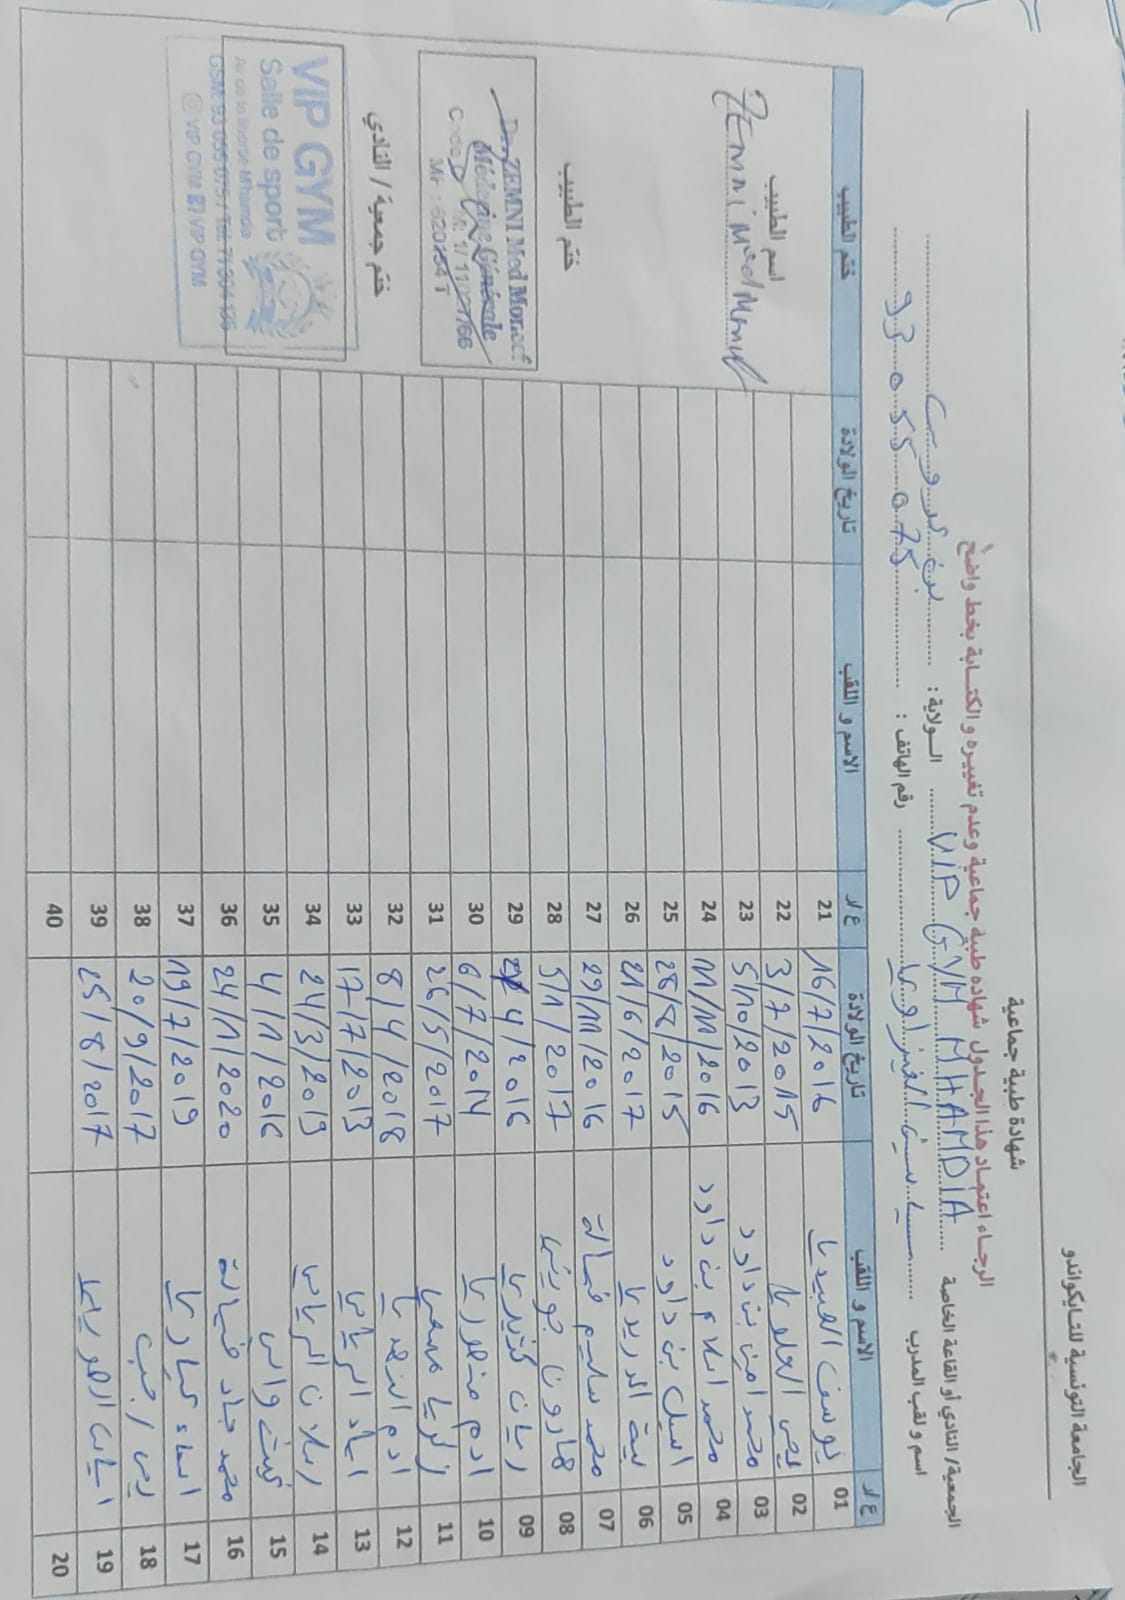 الجامعة التونسية للتايكواندو
شهادة طبية جماعية
الرجاء اعتماد هذا الجدول شهادة طبية جماعية وعدم تغييره والكتابة بخط واضح
الجمعية/ النادي أو القاعة الخاصة VIP GYM MHAMDIA الولاية: بن عروس
اسم و لقب المدرب رقم الهاتف: 93 055 075
ع/ر الاسم و اللقب تاريخ الولادة ع/ر الاسم و اللقب تاريخ الولادة ختم الطبيب
01 يوسف العبيدي 16/7/2016 21
02 العلوي 3/7/2015 22
03 محمد امين بن داود 5/10/2013 23
04 محمد اسلام بن داود 11/11/2016 24
05 اسيل بن داود 28/8/2015 25
06 الدريدي 21/6/2017 26
07 محمد سليم 29/11/2016 27
08 هارون جويني 5/1/2017 28
09 ريان 4/2016 29
10 ادم منصوري 6/7/2014 30
11 زكريا 26/5/2017 31
12 ادم 8/4/2018 32
13 اياد الرياحي 17/7/2013 33
14 رسلان الرياحي 24/3/2019 34
15 4/1/2016 35
16 محمد جاد 24/1/2020 36
17 اسماء 19/7/2019 37
18 رجب 20/9/2017 38
19 25/8/2017 39
20 40
اسم الطبيب
Zemni Med Moncef
ختم الطبيب
Dr. ZEMNI Med Moncef
Médecine Générale
ختم جمعية / النادي
VIP GYM
Salle de sport
GSM: 93 055 075 / Tel: 71
VIP GYM VIP GYM